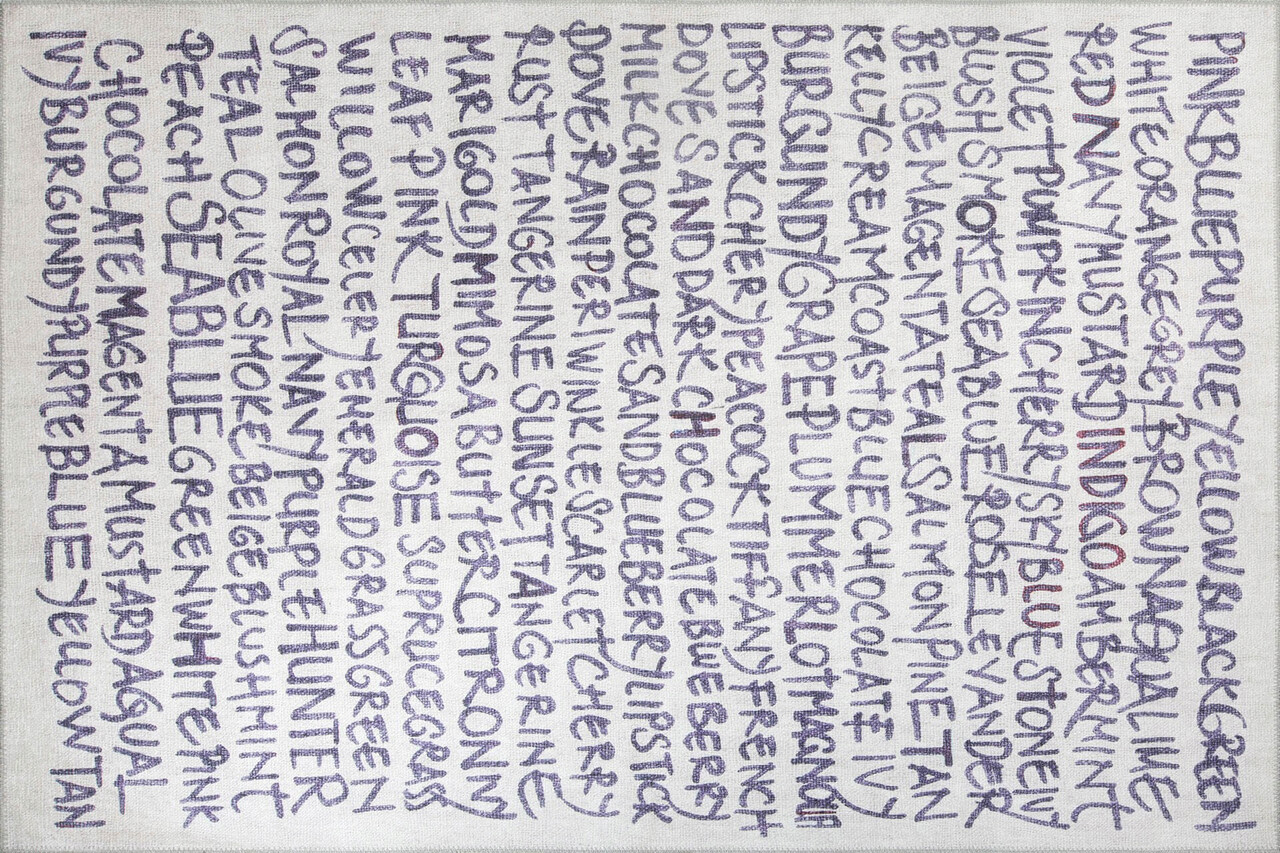 PINKBLUEPURPLEYELLOWBLACKGREEN
WHITEORANGEGREYBROWNAQUALIME
REDNAVYMUSTARDINDIGOAMBERMINT
VIOLETPUMPKINCHERRYSKYBLUESTONEIVY
BLUSHSMOKESEABLUEROSELEVANDER
BEIGEMAGENTATEALSALMONPINETAN
KELLYCREAMCOASTBLUECHOCOLATEIVY
BURGUNDYGRAPEPLUMIMERLOTMAGNOLIA
LIPSTICKCHERYPEACOCKTIFFANYFRENCH
DOVESANDDARKCHOCOLATEBWEBERRY
MILKCHOCOLATESANDBLUEBERRYLIPSTICK
DOVERAINPERIWINKLESCARLETCHERRY
RUSTTANGERINESUNSETTANGERINE
MARIGOLDMIMOSABUTTERCITRONNY
LEAF PINK TURQUOISE SUPRUCEGRASS
WILLOWCELERYEMERALDGRASSGREEN
SALMONROYALNAVYPURPLEHUNTER
TEAL OLIVESMOKEBEIGEBLUSHMINT
PEACHSEABLUEGREENWHITEPINK
CHOCOLATEMAGENTAMUSTARDAQUAL
IVYBURGUNDYPURPLEBLUEYELLOWTAN